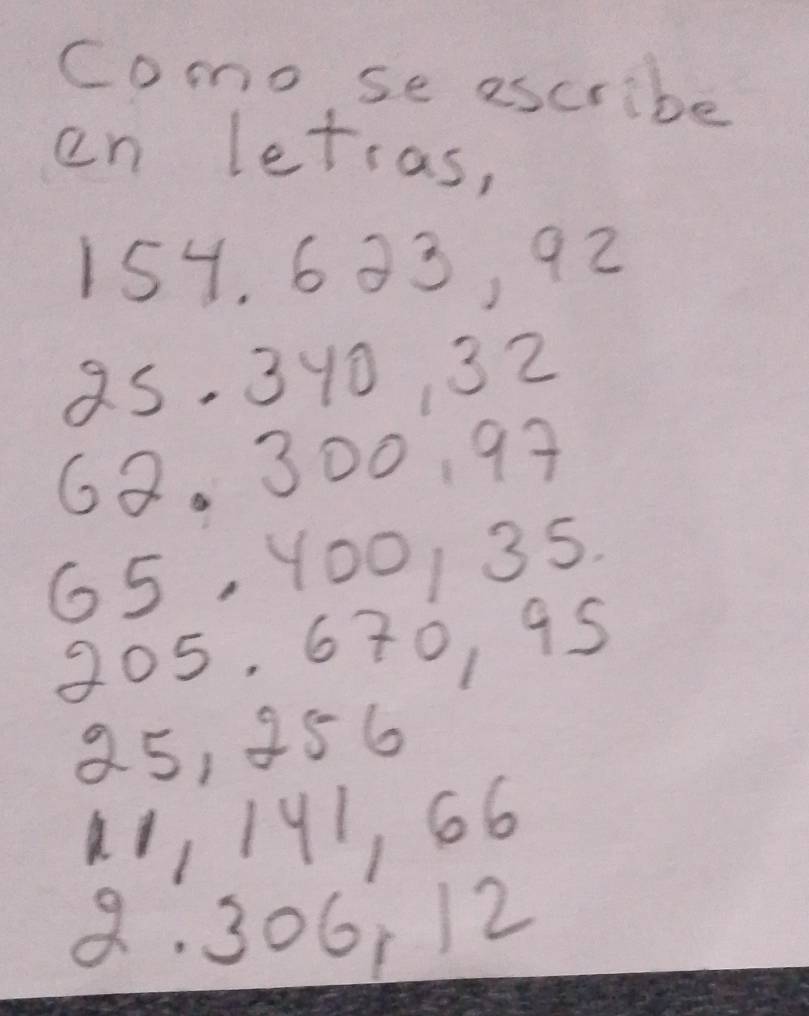 Como se escribe
en letras,
154.623,92
25.340,32
62.300,97
65.400,35.
205.670,95
25,256
11,141,66
2.306,12